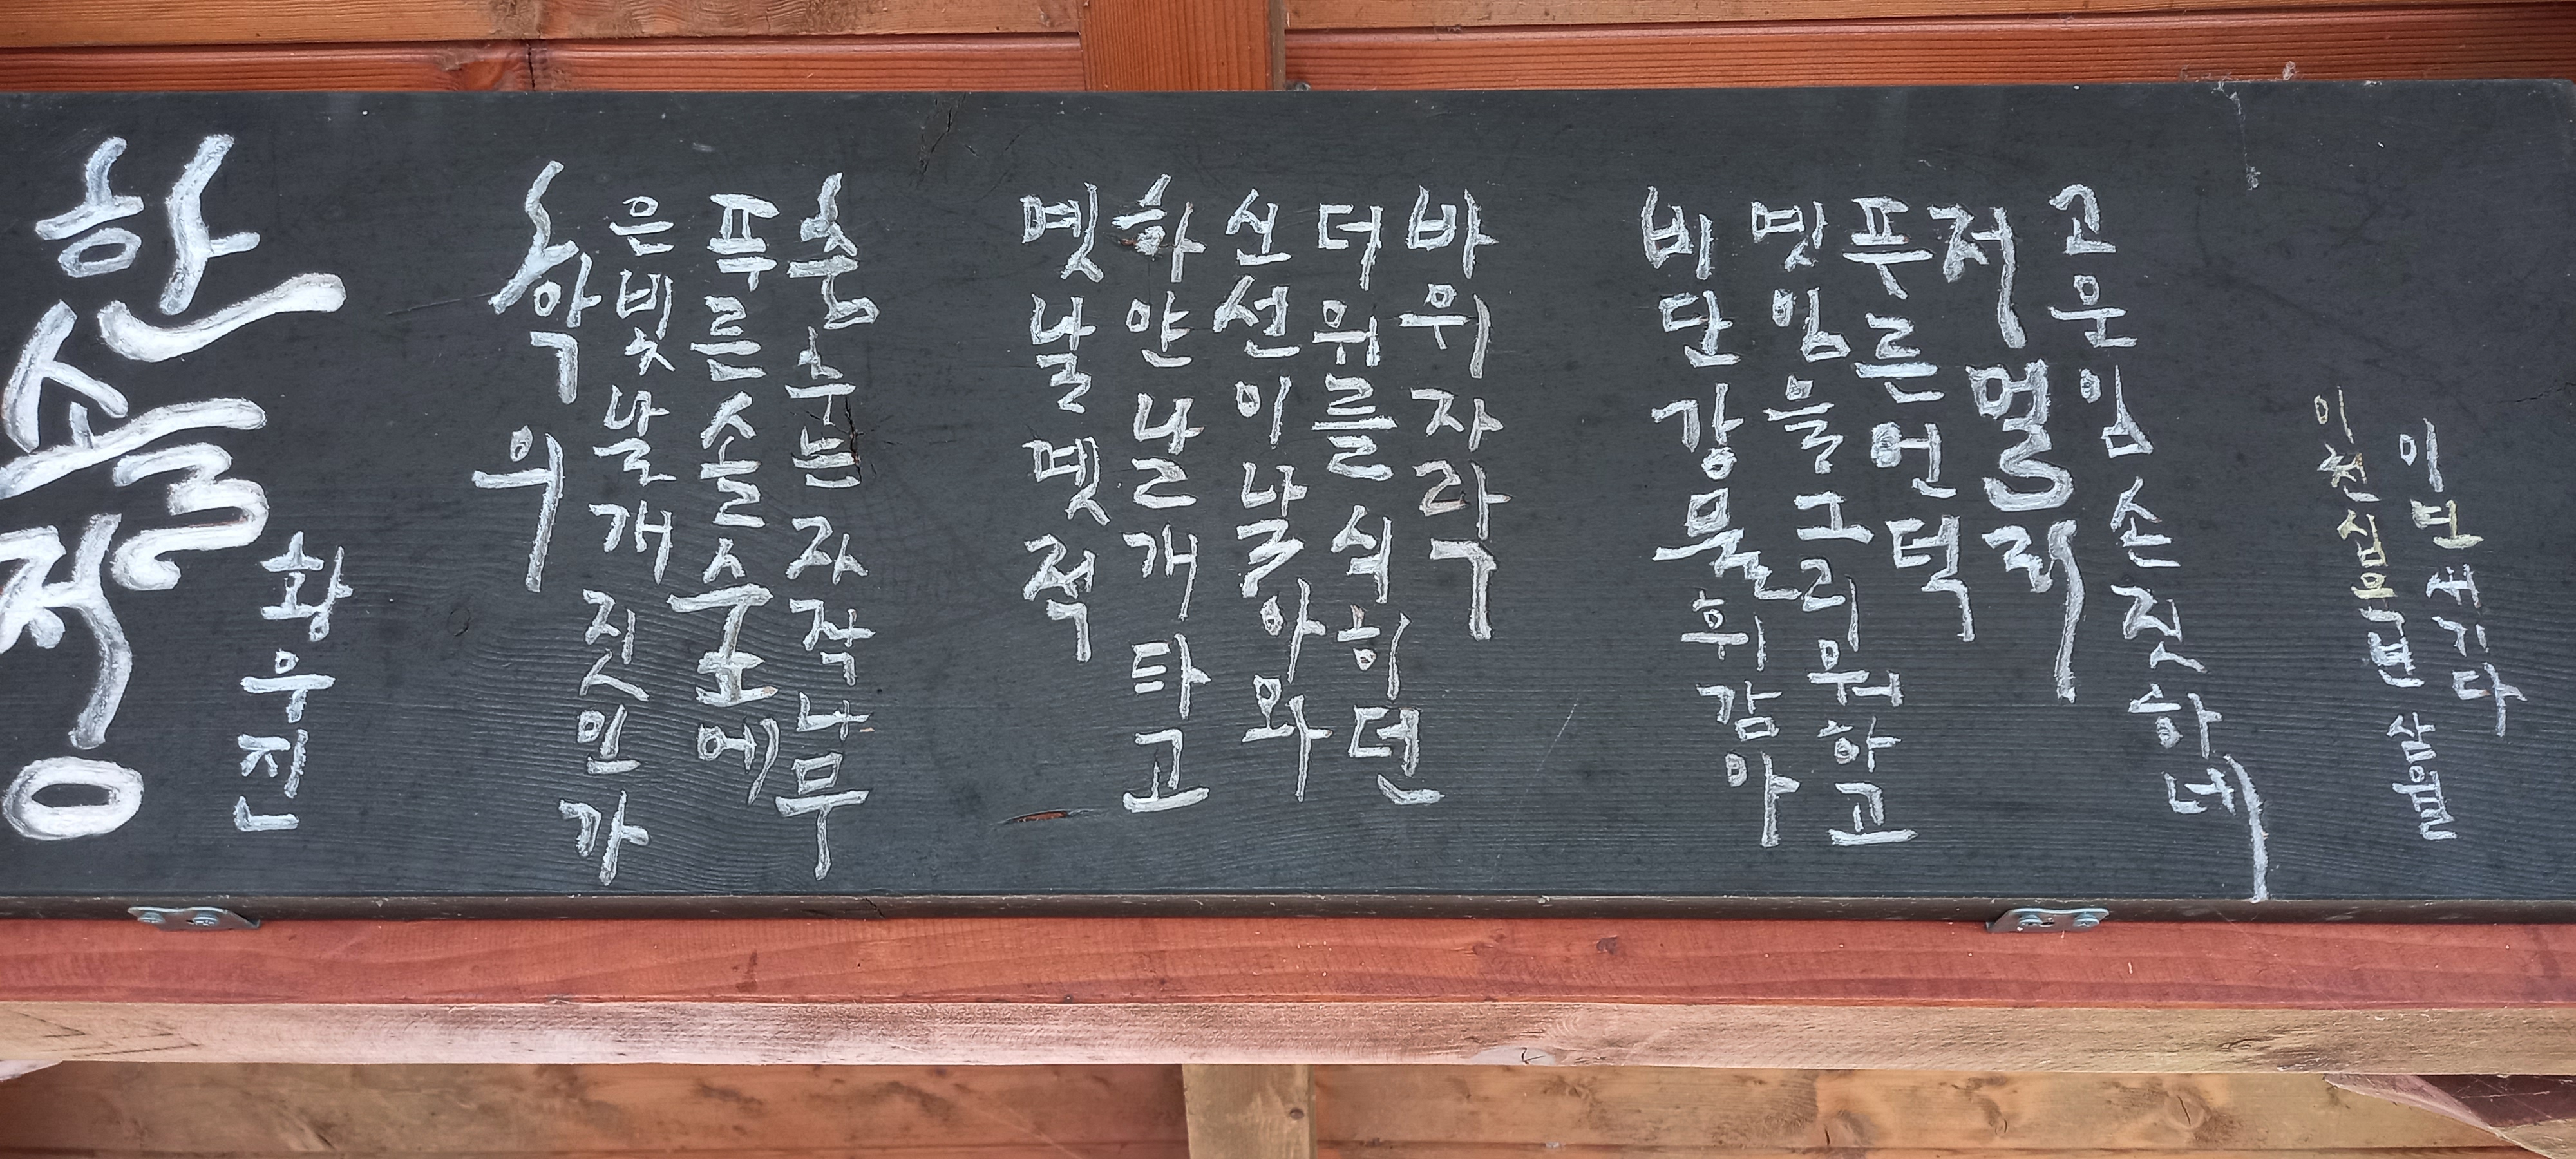 한솔정
황우진
위
은빛날개짓인가
춤추는 자작나무
옛날 옛적
하얀 날개 타고
신선이 날아와
더위를 식히던
바위 자락
비단강물 휘감아
임을 그리워하고
푸른 언덕
저 멀리
고운 임 손짓하네
이천십오년 삼월
새기다